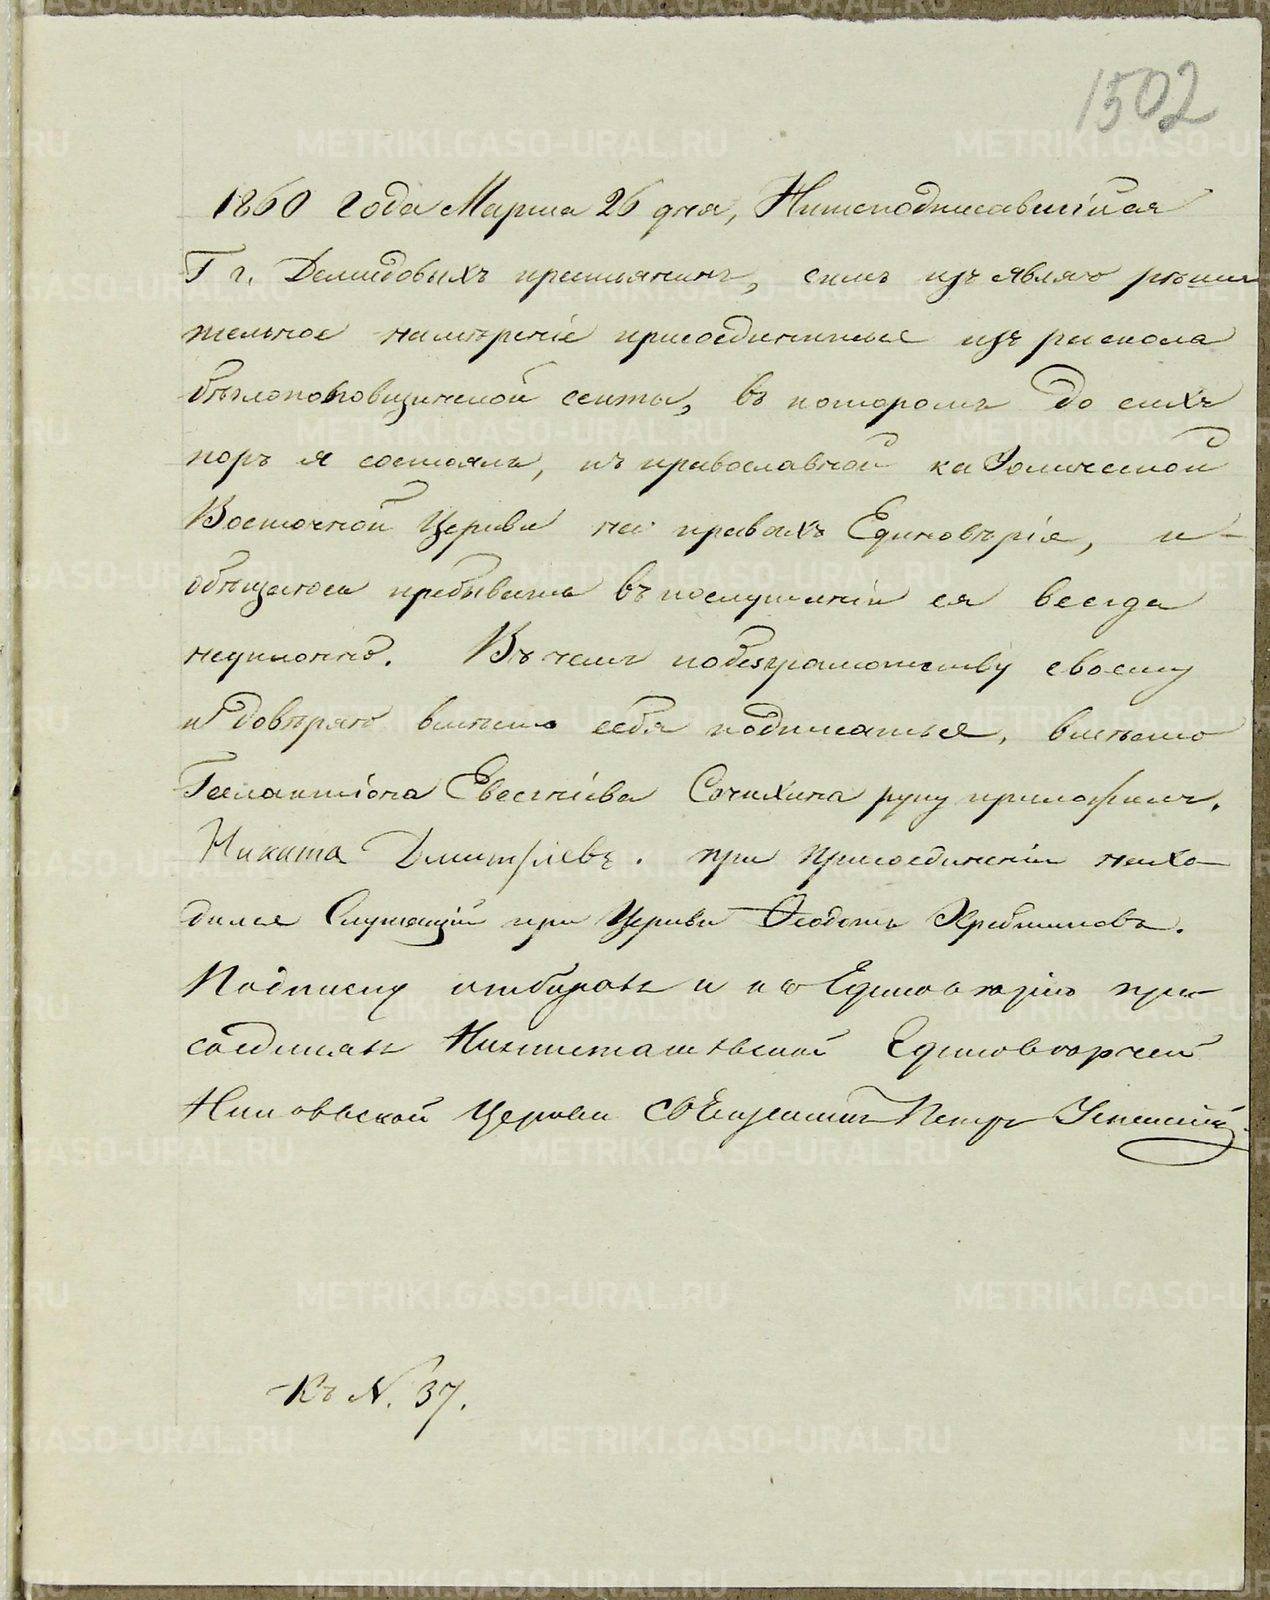 1502
1860 года Марта 26 дня, Нижеподписавшійся
Г г. Демидовыхъ крестьянинъ, симъ изъявляю рѣши
тельное намѣреніе присоединиться изъ раскола
бѣглопоповщинской секты, въ которомъ до сихъ
поръ я состоялъ, къ православной каѳолической
Восточной Церкви на правахъ Единовѣрія, и
обѣщаюся пребывать въ послушаніи ея всегда
неуклонно. Въ чемъ по безграмотству своему
и довѣряю вмѣсто себя подписаться, вмѣсто
Галактіона Евсевіева Сочихина руку приложилъ.
Никита Дмитріевъ. при присоединеніи нахо-
дился Служащій при Церкви Ѳеодотъ
Подписку отбиралъ и къ Единовѣрію при-
соединялъ Нижнетагильской Единовѣрческой
Церкви Священникъ Петръ Успенскій
Къ N. 37.
METRIKI.GASO-URAL.RU